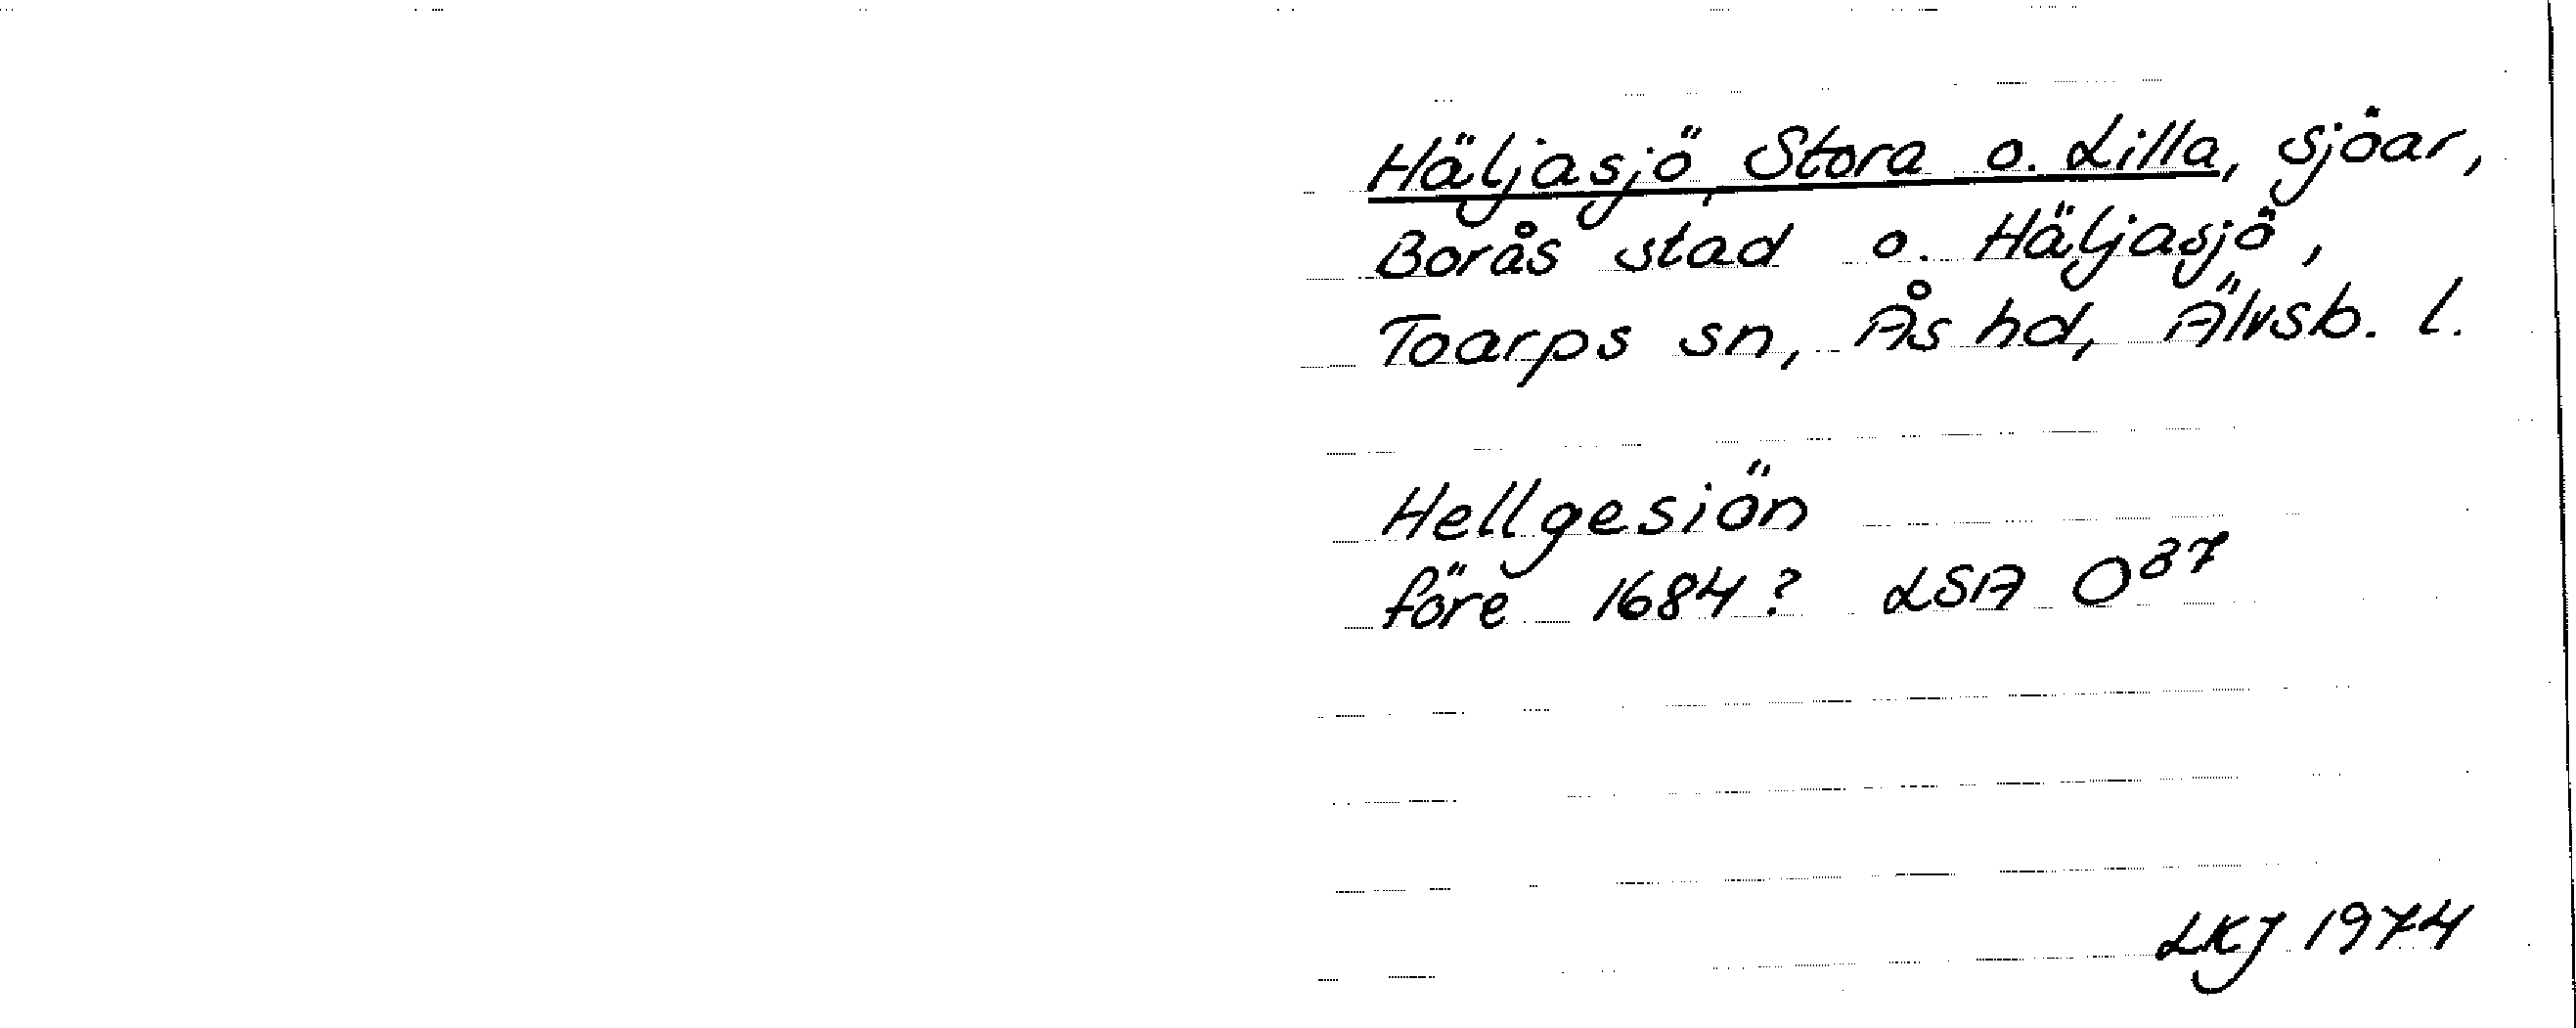 Häljasjö, Stora o. Lilla, sjöar,
Borås stad o. Häljasjö,
Toarps sn, Ås hd, Älvsb. l.
Hellgesiön
före 1684? LSA O³⁷
LKJ 1974